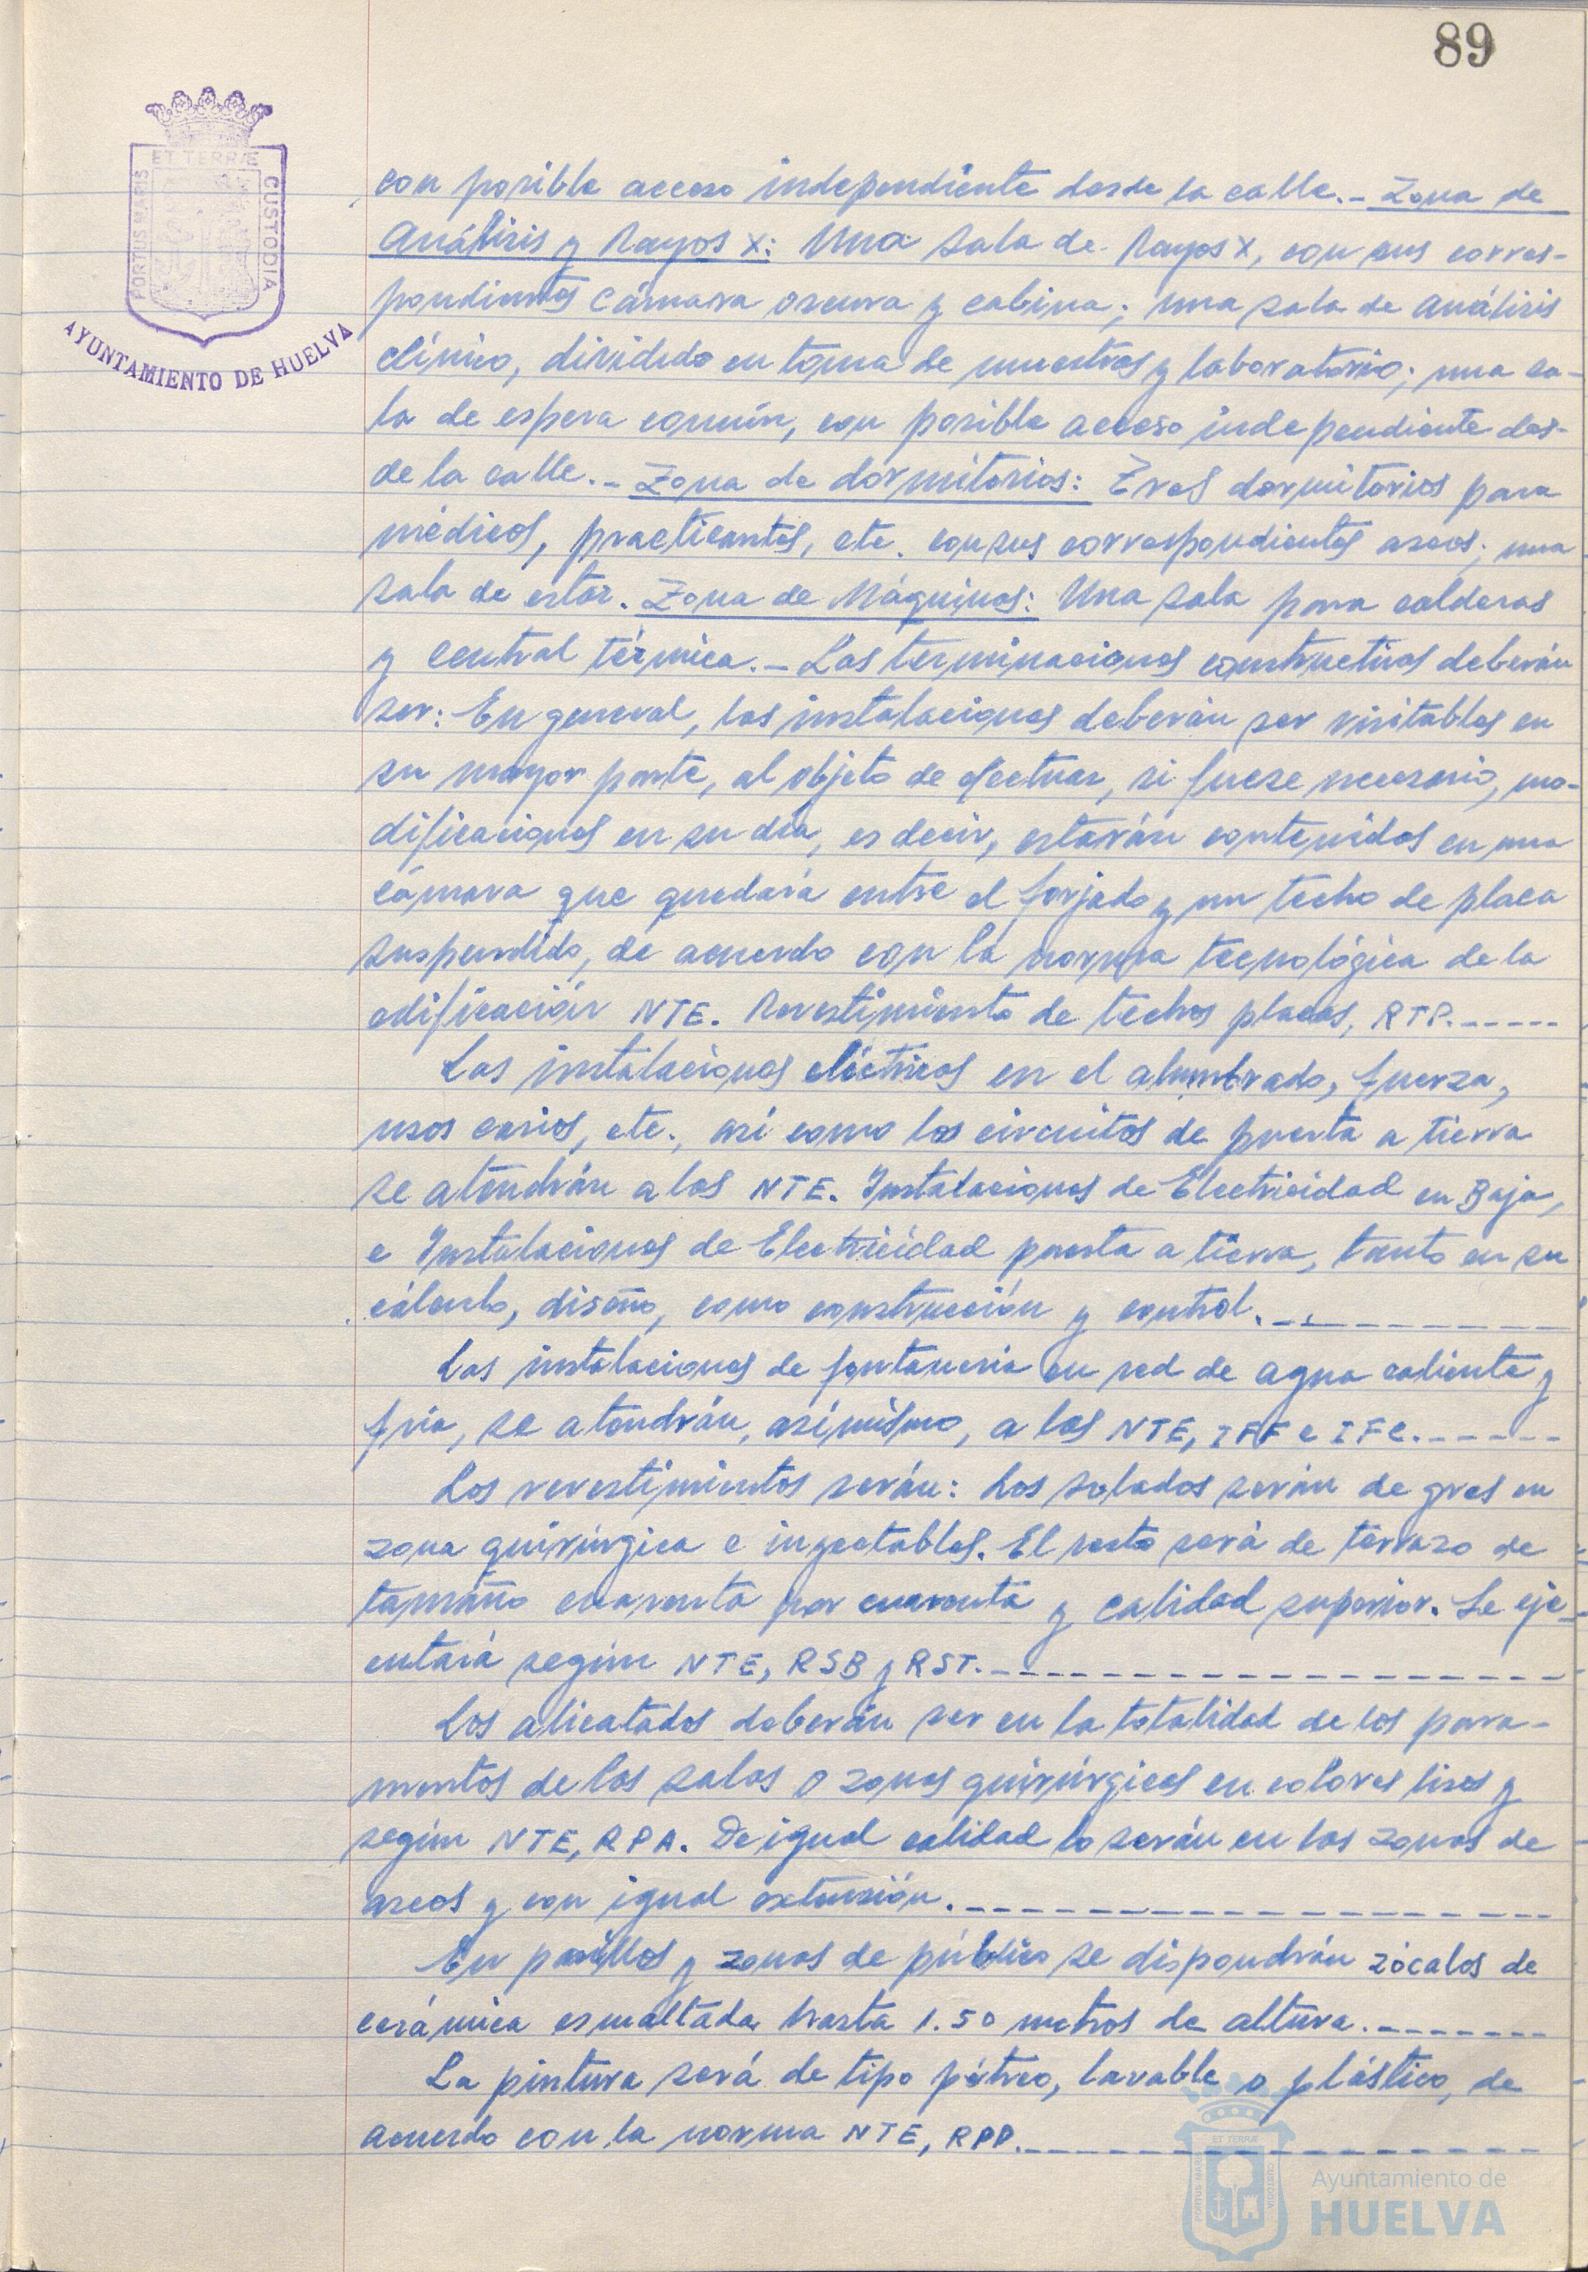 89
ET TERRÆ
PORTUS MARIS
CUSTODIA
AYUNTAMIENTO DE HUELVA
con posible acceso independiente desde la calle.- Zona de
Análisis y Rayos X: Una sala de Rayos X, con sus corres-
pondientes cámara oscura y cabina; una sala de análisis
clínico, dividido en toma de muestras y laboratorio; una sa-
la de espera común, con posible acceso independiente des-
de la calle.- Zona de dormitorios: Tres dormitorios para
médicos, practicantes, etc. con sus correspondientes aseos; una
sala de estar. Zona de Máquinas: Una sala para calderas
y central térmica.- Las terminaciones constructivas deberán
ser: En general, las instalaciones deberán ser visitables en
su mayor parte, al objeto de efectuar, si fuese necesario, mo-
dificaciones en su día, es decir, estarán contenidas en una
cámara que quedará entre el forjado y un techo de placa
suspendido, de acuerdo con la norma tecnológica de la
edificación NTE. Revestimiento de techos placas, RTP.-----
Las instalaciones eléctricas en el alumbrado, fuerza,
usos varios, etc., así como los circuitos de puesta a tierra
se atendrán a las NTE. Instalaciones de Electricidad en Baja,
e Instalaciones de Electricidad puesta a tierra, tanto en su
cálculo, diseño, como construcción y control.----------
Las instalaciones de fontanería en red de agua caliente y
fría, se atendrán, asímismo, a las NTE, IFF e IFC.------
Los revestimientos serán: Los solados serán de gres en
zona quirúrgica e inyectables. El resto será de terrazo de
tamaño cuarenta por cuarenta y calidad superior. Se eje-
cutará según NTE, RSB y RST.--------------------
Los alicatados deberán ser en la totalidad de los para-
mentos de las salas o zonas quirúrgicas en colores lisos y
según NTE, RPA. De igual calidad lo serán en las zonas de
aseos y con igual extensión.--------------------
En pasillos y zonas de público se dispondrán zócalos de
cerámica esmaltada hasta 1.50 metros de altura.-------
La pintura será de tipo pétreo, lavable o plástico, de
acuerdo con la norma NTE, RPP.--------------------
ET TERRÆ
PORTUS MARIS
CUSTODIA
Ayuntamiento de
HUELVA